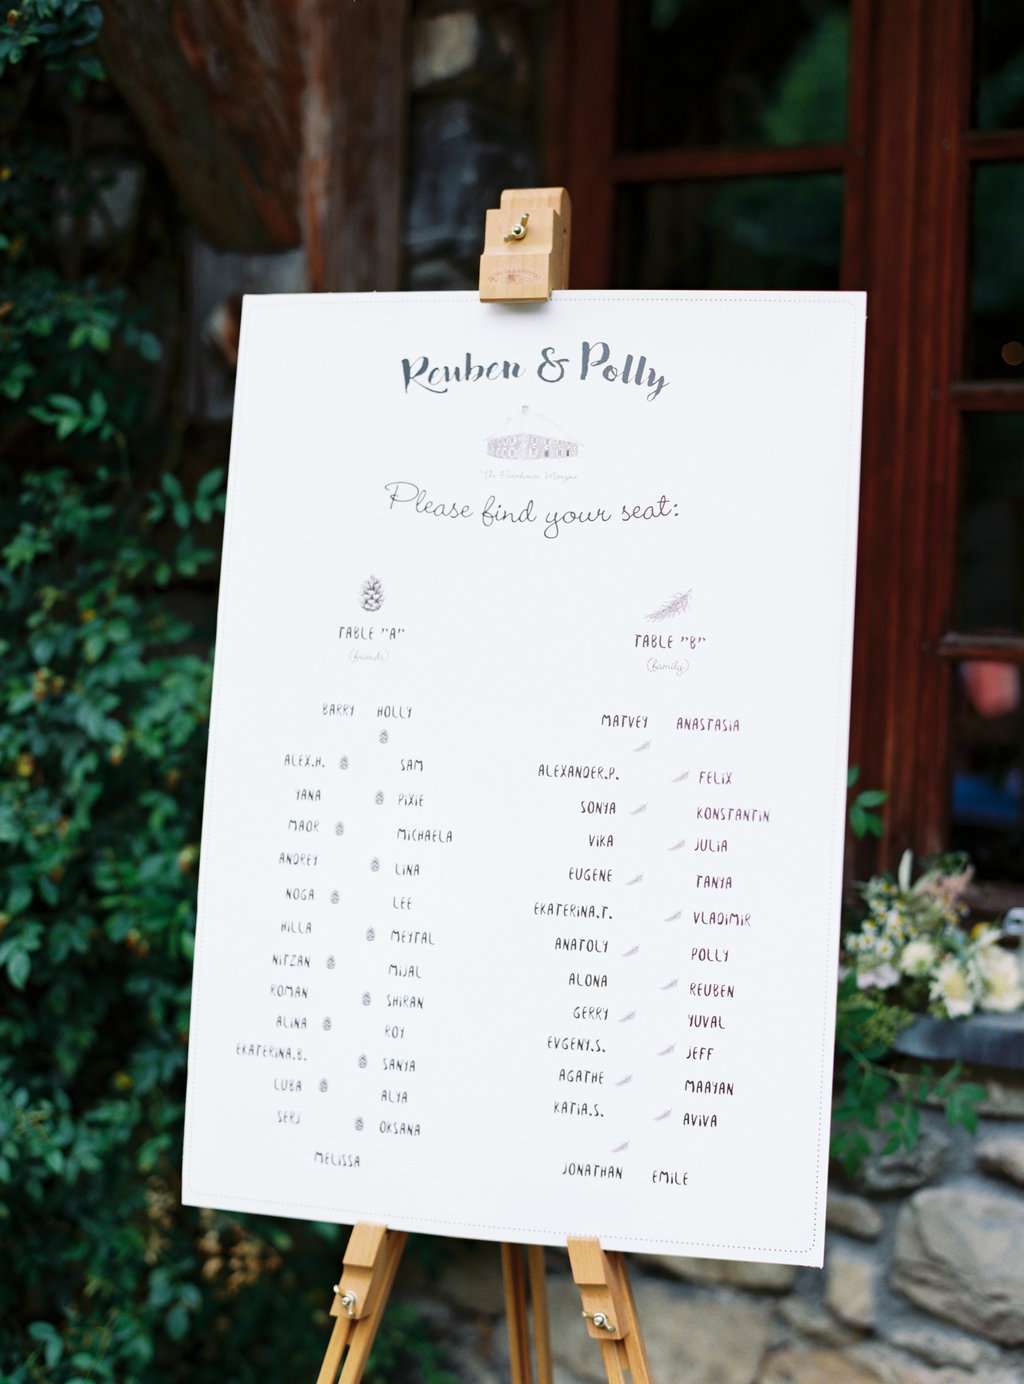 Reuben & Polly
Please find your seat:
TABLE "A"
(friends)
BARRY HOLLY
ALEX.H. SAM
YANA PIXIE
MAOR MICHAELA
ANDREY LINA
NOGA LEE
HILLA MEYTAL
NITZAN MIJAL
ROMAN SHIRAN
ALINA ROY
EKATERINA.B. SANYA
LUBA ALYA
SERJ OKSANA
MELISSA
TABLE "B"
(family)
MATVEY ANASTASIA
ALEXANDER.P. FELIX
SONYA KONSTANTIN
VIKA JULIA
EUGENE TANYA
EKATERINA.T. VLADIMIR
ANATOLY POLLY
ALONA REUBEN
GERRY YUVAL
EVGENY.S. JEFF
AGATHE MAAYAN
KATIA.S. AVIVA
JONATHAN EMILE